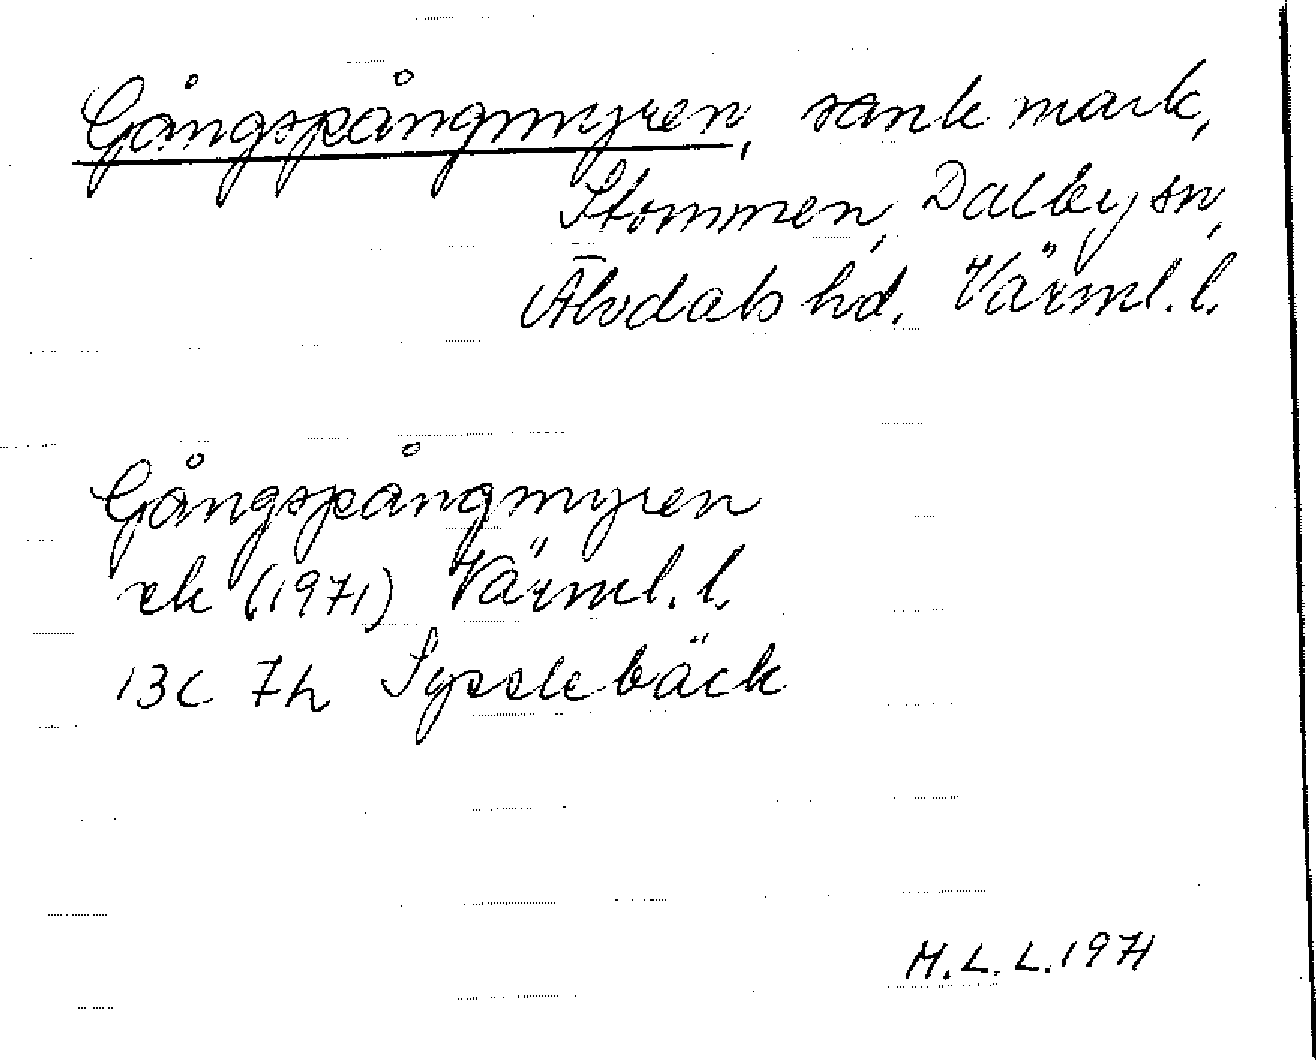 Gångspångmyren, sank mark,
Stommen, Dalby sn,
Älvdals hd. Värml. l.
Gångspångmyren
ek (1971) Värml. l.
13C 7h Sysslebäck
M.L.L. 1971